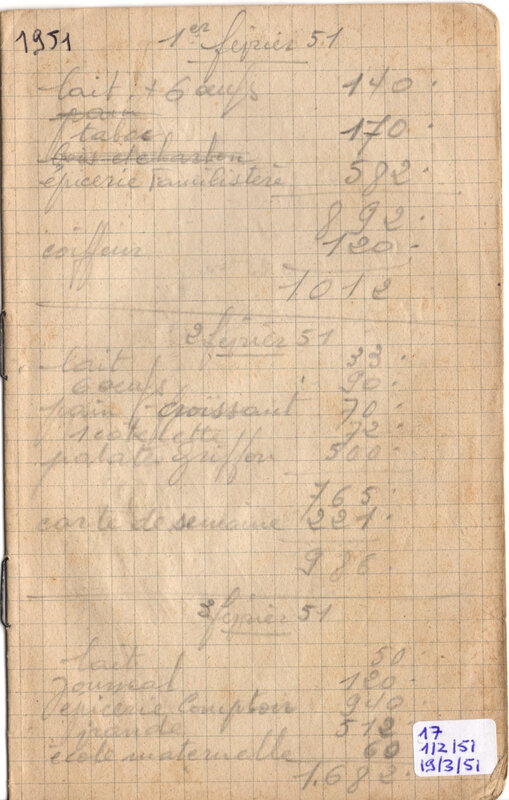 1951
1er février 51
lait + 6 œufs 140
pain
tabac 170
bois et charbon
épicerie Familistère 582
892
coiffeur 120
1.012
2 février 51
lait 33
6 œufs 90
pain + croissant 70
1 côtelette 72
patate griffon 500
765
carte de semaine 221
986
3 février 51
lait 50
journal 120
épicerie Complon 940
viande 512
école maternelle 60
1.682
17
1/2/51
19/3/51